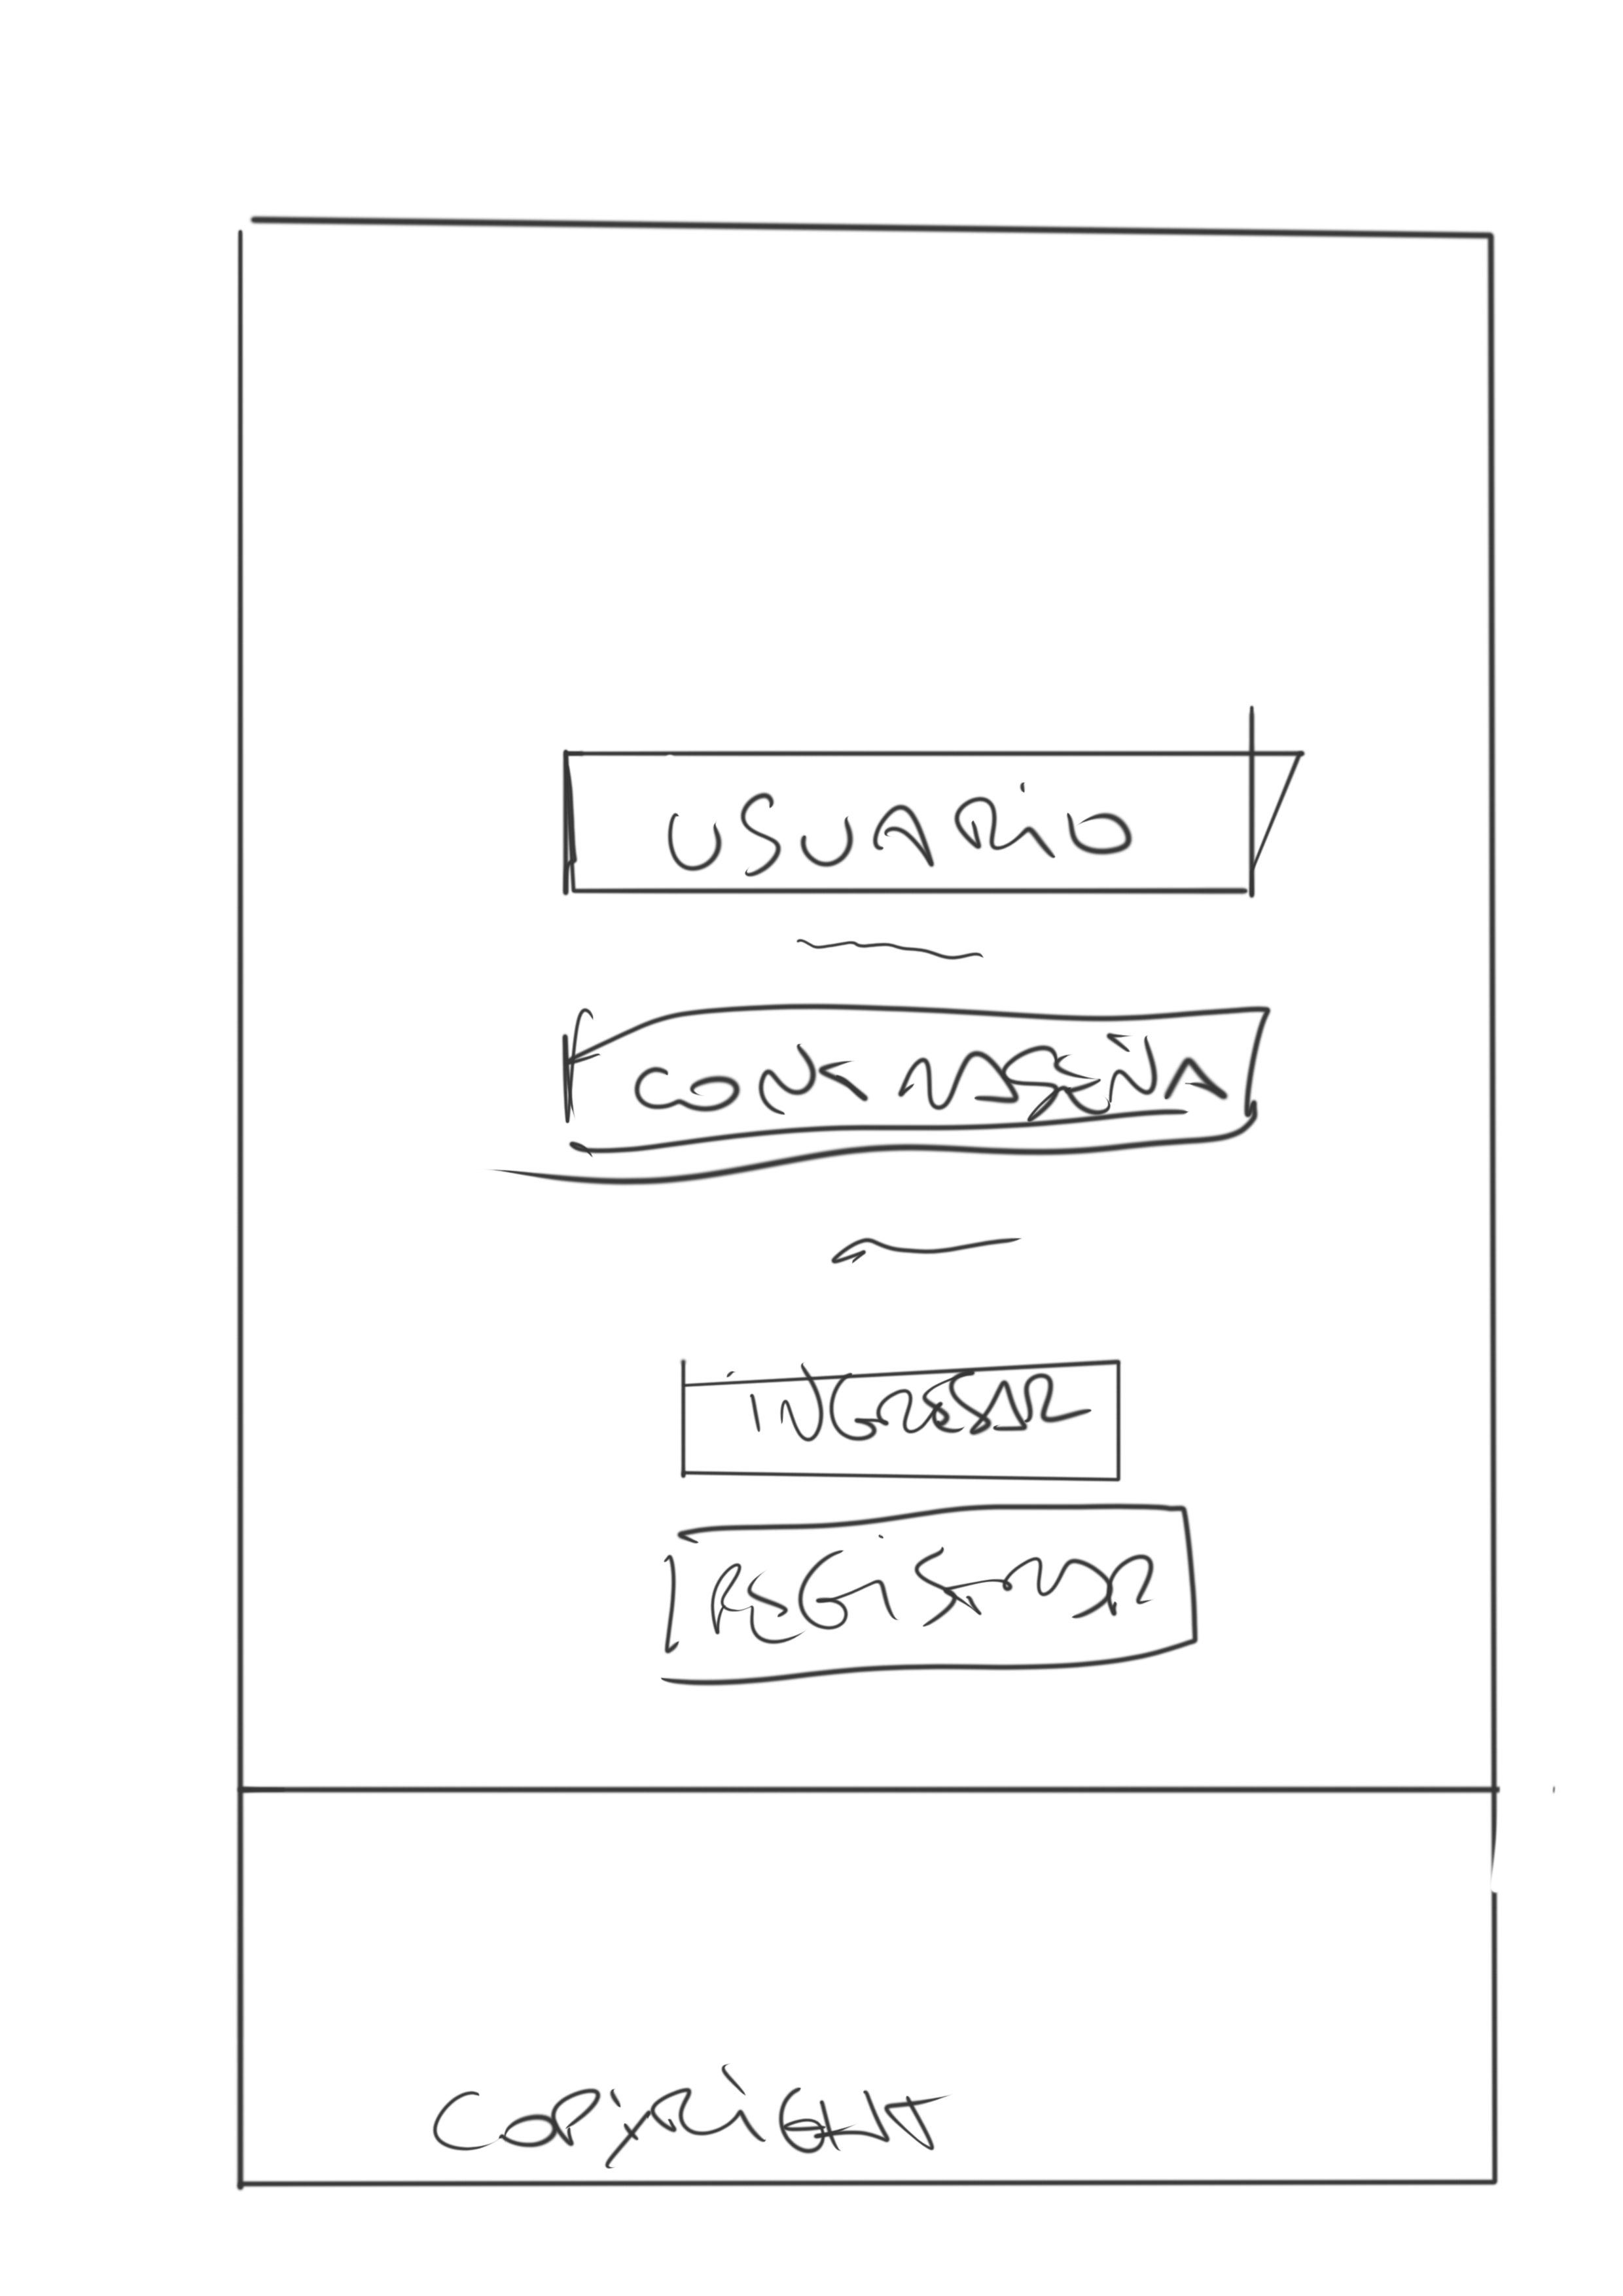 USUARiO
CONTRASEÑA
iNGRESAR
REGiSTRAR
COPYRiGHT